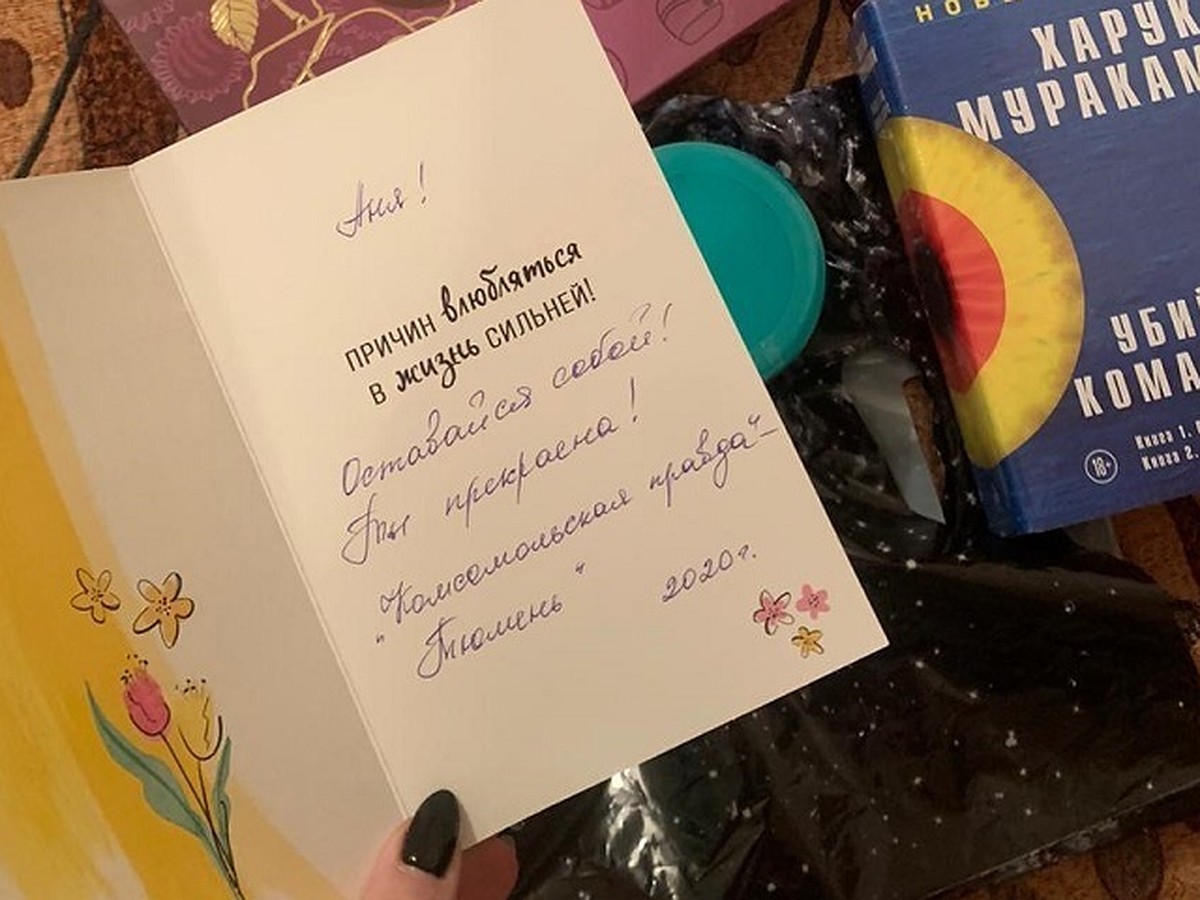 Аня!
ПРИЧИН влюбляться
В жизнь СИЛЬНЕЙ!
Оставайся собой!
Ты прекрасна!
"Комсомольская правда"-
"Тюмень" 2020г.
ХАРУК
МУРАКАМ
УБИ
КОМА
18+
Книга 1.
Книга 2.